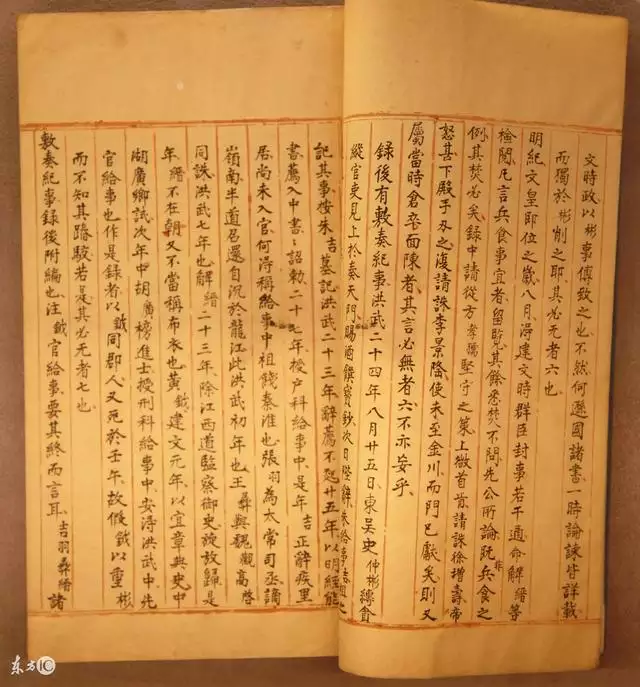 文時政以彬事傅致之也不然何遜國諸書一時論諫皆詳載
而獨於彬削之耶其必無者六也
明紀文皇即位之歲八月淂建文時群臣封事若干通命解縉等
檢閱凡言兵食事宜者留覧其餘悉焚不問先公所論既非兵食之
例其焚必矣録中請從方孝孺堅守之策上皷首肯請誅徐增壽帝
怒甚下殿手刃之復請誅李景隆使未至金川而門已獻矣則又
屬當時倉卒面陳者其言必無者六不亦妄乎
録後有敷奏紀事洪武二十四年八月廿五日東吴史仲彬縛貪
縱官吏見上於奏天門賜酒饌寳鈔次日陛辭朱給事吉祖之
記其事按朱吉墓記洪武二十三年辭薦不起廿五年以明經能
書薦入中書詔勅二十七年授户科給事中是年吉正辭疾里
居尚未入官何淂稱給事中祖餞秦淮也張羽為太常司丞謫
嶺南半道召還自沉於龍江此洪武初年也王彝與魏觀高啓
同誅洪武七年也解縉二十三年除江西道監察御史旋放歸是
年縉不在朝又不當稱布衣也黃鉞建文元年以宜章典史中
湖廣鄉試次年中胡廣榜進士授刑科給事中安淂洪武中先
官給事也作是録者以鉞同郡人又死於壬年故假鉞以重彬
而不知其踳駮若是其必无者七也
敷奏紀事録後附編也注鉞官給事要其終而言耳吉羽彝縉諸
东方IC